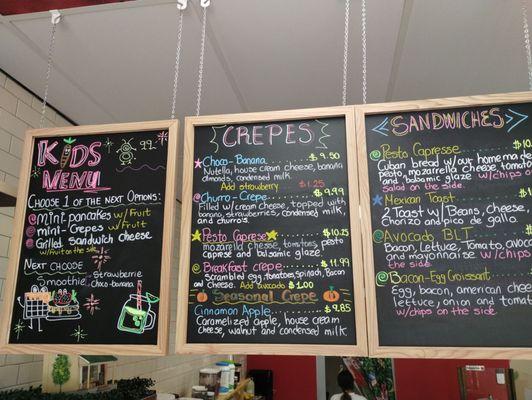 KIDS
MENU
.99
CHOOSE 1 OF THE NEXT OPTIONS:
mini pancakes w/ Fruit
mini-Crepes w/ Fruit
Grilled Sandwich Cheese
w/ Fruit on the side
NEXT CHOOSE
Smoothie
Strawberry
Choco-Banana
CREPES
Choco-Banana $9.50
Nutella, house cream cheese, banana,
almonds, condensed milk
Add strawberry $1.25
Churro-Crepe $9.99
Filled w/ cream cheese, topped with
banana, strawberries, condensed milk,
and churro's.
Pesto Caprese $10.25
mozarella cheese, tomatoes, pesto
caprese and balsamic glaze.
Breakfast crepe $11.99
Scrambled egg, tomatoes, Spinach and
Bacon and cheese. Add avocado $1.00
Seasonal Crepe
Cinnamon Apple $9.85
Caramelized Apple, house cream
cheese, walnut and condensed milk
SANDWICHES
Pesto Caprese $10.
Cuban bread w/ our homemade
pesto, mozarella cheese, tomato
and balsamic glaze w/ chips or
Salad on the side.
Mexican Toast $1
2 Toast w/ Beans, cheese,
chorizo and pico de gallo
Avocado BLT $
Bacon, Lettuce, Tomato, avocado
and mayonnaise w/ chips on
the side
Bacon-Egg Croissant $
Egg, bacon, american cheese,
lettuce, onion and tomato
w/ chips on the side